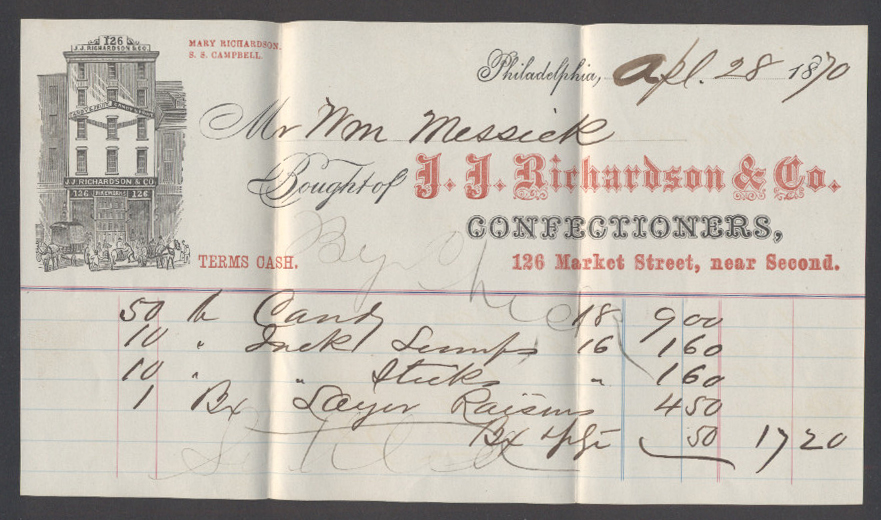 126
J. J. RICHARDSON & CO.
J. J. RICHARDSON & CO.
126 126
MARY RICHARDSON.
S. S. CAMPBELL.
Philadelphia, Apl. 28 1870
Mr Wm Messick
Bought of J. J. Richardson & Co.
CONFECTIONERS,
TERMS CASH. 126 Market Street, near Second.
By
50 lb Candy 18 9 00
10 " Lumps 16 1 60
10 " " Sticks " 1 60
1 Bx Layer Raisins 4 50
Bx 50 17 20